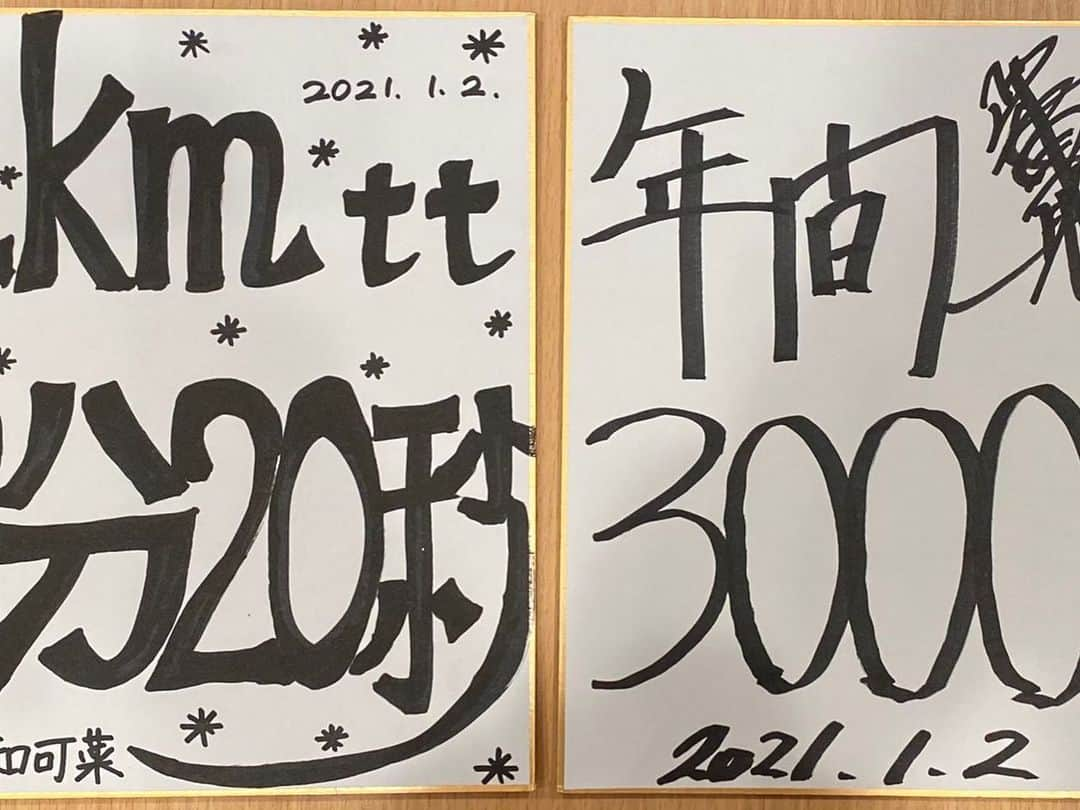 2021. 1. 2.
km tt
分20秒
和可菜
年間
3000
2021. 1. 2